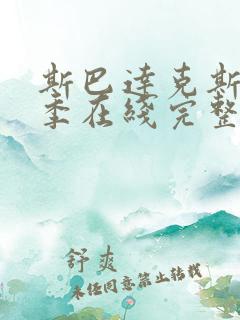 斯巴达克斯
季在线完整
舒爽
未经同意禁止转载